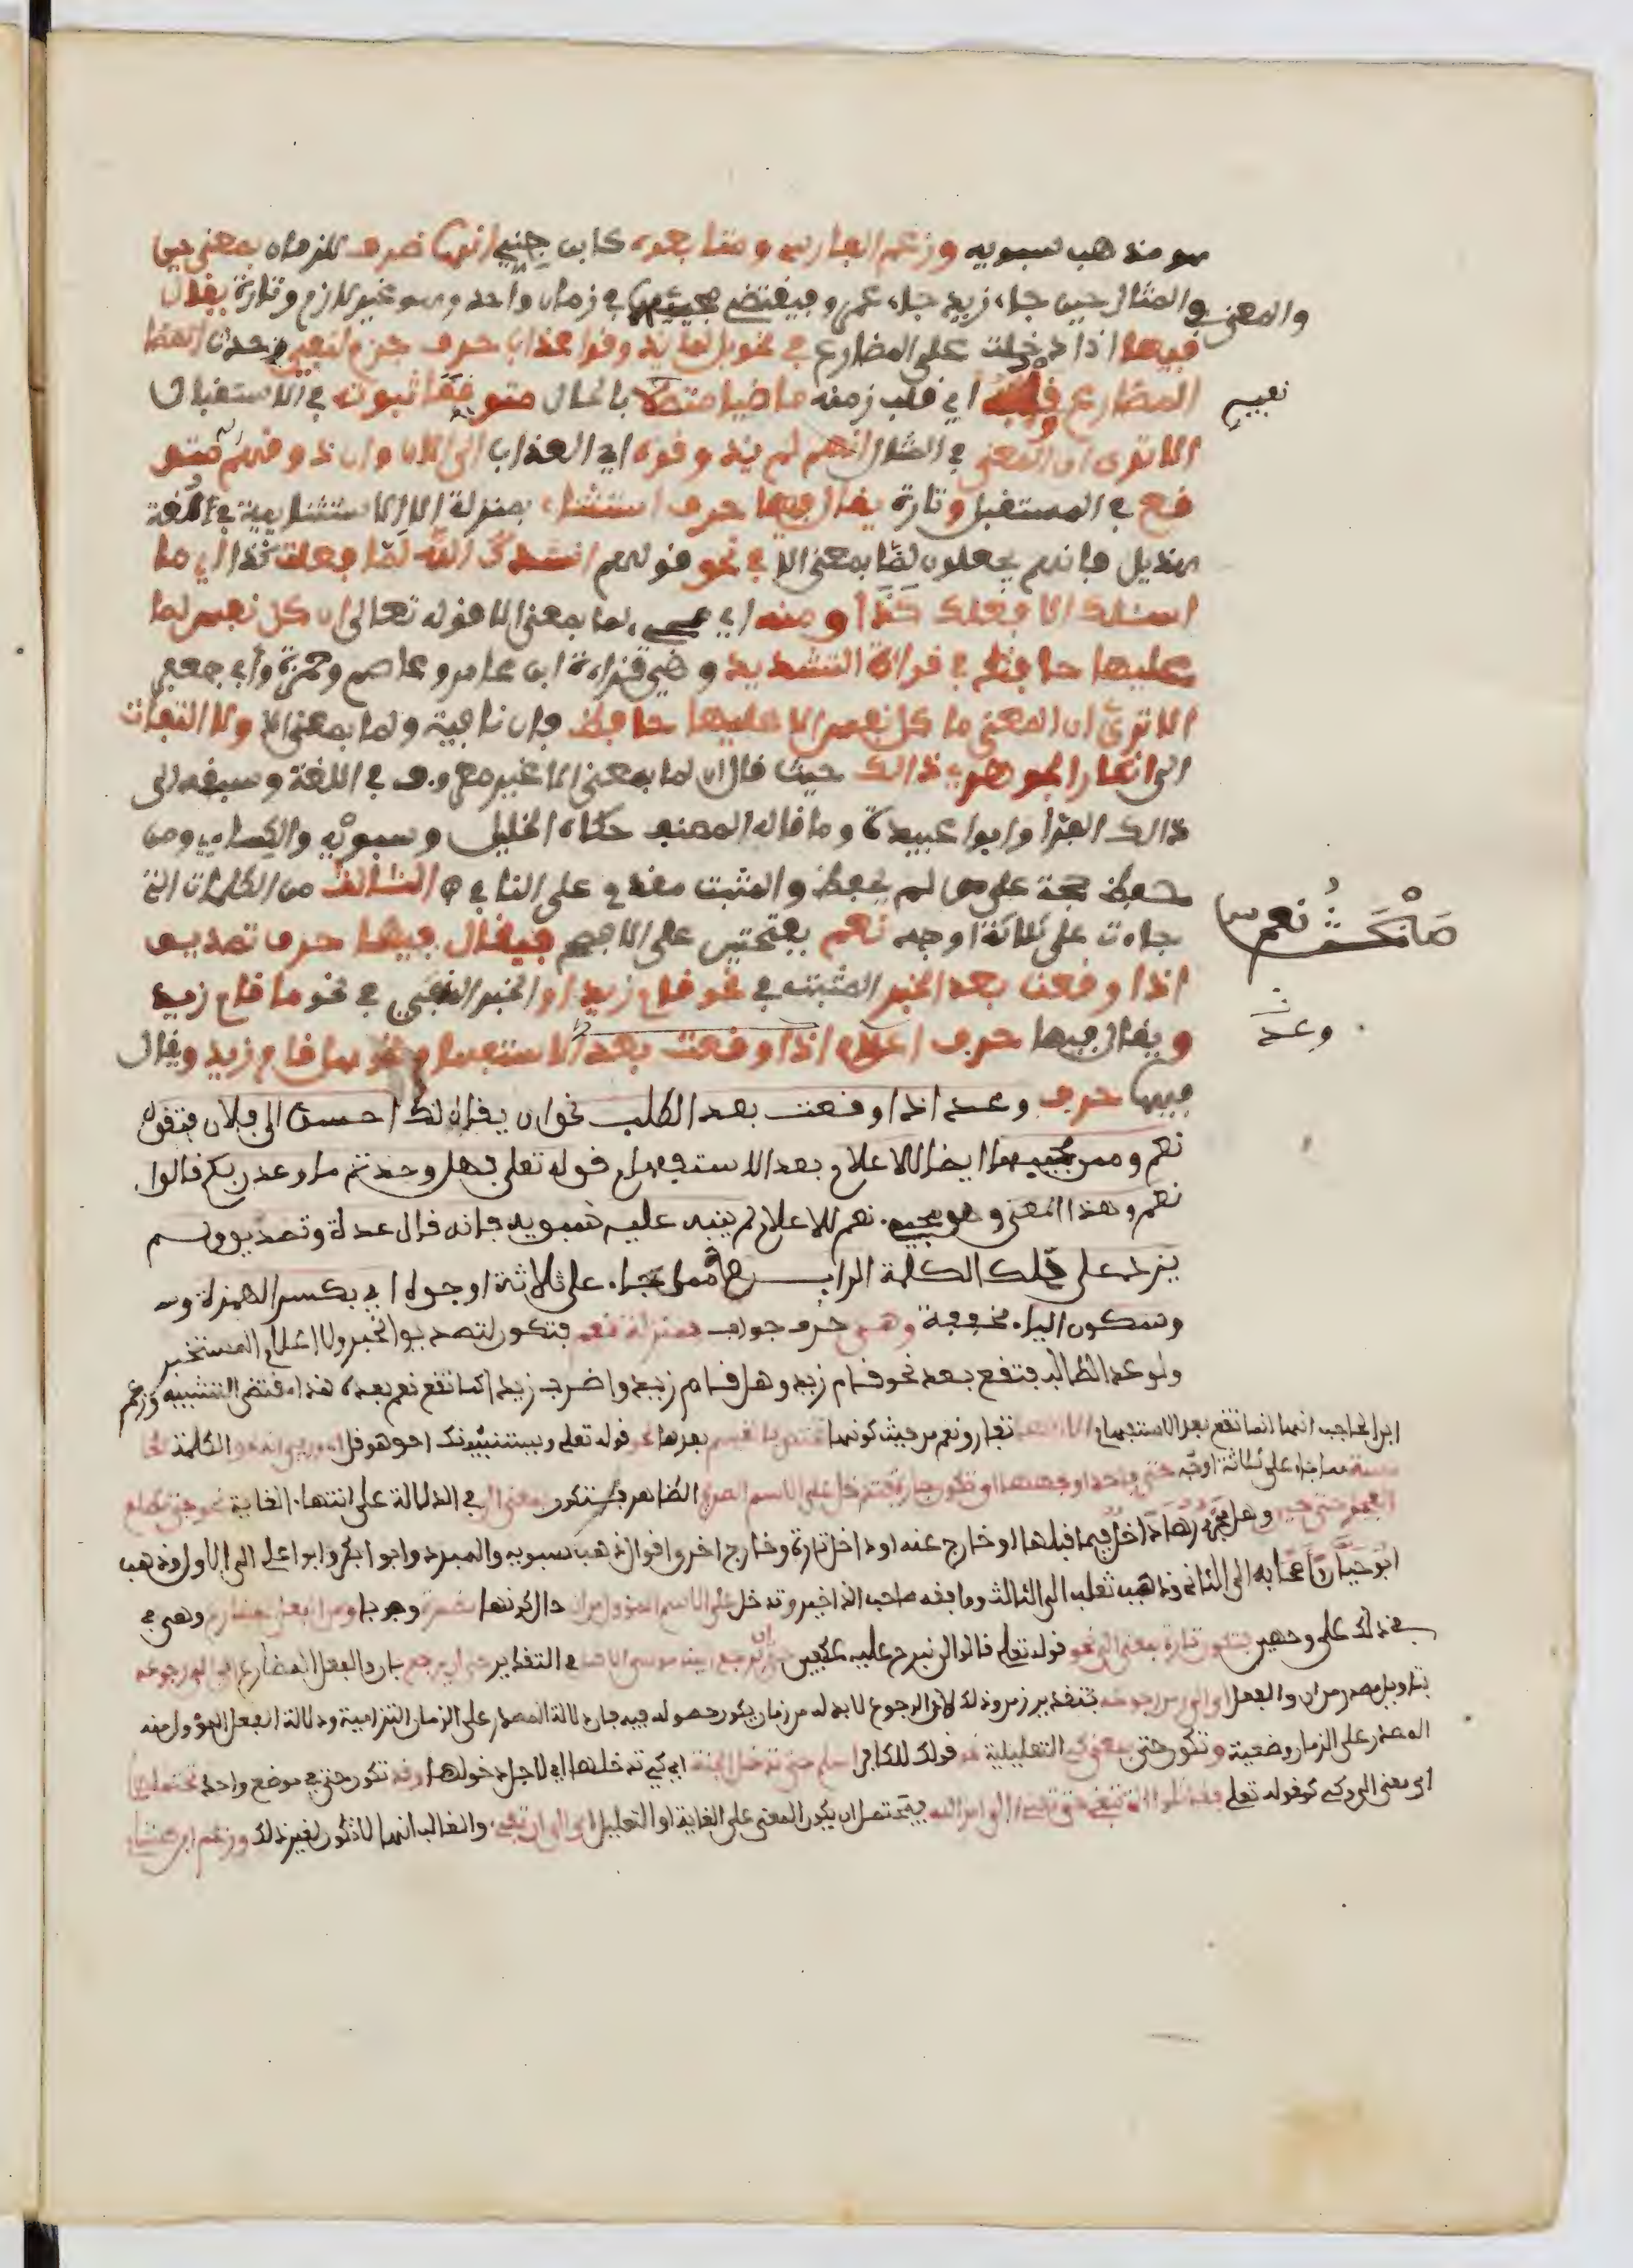 هو مذهب سيبويه وزعم الفارسي ومتابعوه كابن جني انها ظرف للزمان بمعنى حين
والمعنى في المثال حين جاء زيد جاء عمرو فيقتضي مجيئهما في زمان واحد وهو غير لازم وتارة يقال
فيها اذا دخلت على المضارع في نحو بل لما يذوقوا عذاب حرف جزم لنفي حدث
المضارع وقلبه اي قلب زمنه ماضيا متصلا بالحال متوقعا ثبوته في الاستقبال
نفيه
الا ترى ان المعنى في المثال انهم لم يذوقوه اي العذاب الى الان وان ذوقهم له متو
قع في المستقبل وتارة يقال فيها حرف استثناء بمنزلة الا الاستثنايية في لغة
هذيل فانهم يجعلون لما بمعنى الا في نحو قولهم انشدك الله لما فعلت كذا اي ما
اسئلك الا فعلك كذا ومنه اي لما بمعنى الا قوله تعالى ان كل نفس لما
عليها حافظ في قراءة التشديد وهي قراءة ابن عامر وعاصم وحمزة وأبي جعفر
الا ترى ان المعنى ما كل نفس الا عليها حافظ فان نافية ولما بمعنى الا ولا التفات
الى انكار الجوهري ذالك حيث قال ان لما بمعنى الا غير معروف في اللغة وسبقه الى
ذالك الفرا وابوا عبيدة وما قاله المصنف حكاه الخليل وسيبويه والكسايي ومن
حفظ حجة على من لم يحفظ والمثبت مقدم على النافي الثالث من الكلمات التي
جاءت على ثلاثة اوجه نعم بفتحتين على الافصح فيقال فيها حرف تصديق
نعم
اذا وقعت بعد الخبر المثبت في نحو قام زيد او الخبر المنفي في نحو ما قام زيد
ويقال فيها حرف اعلام اذا وقعت بعد الاستفهام نحو هل قام زيد ويقال
وعد
فيها حرف وعد اذا وقعت بعد الطلب نحو ان يقال لك احسن الى فلان فتقول
نعم ومن مجييها ايضا للاعلام بعد الاستفهام قوله تعلى فهل وجدتم ما وعد ربكم قالوا
نعم وهذا المعنى وهو مجيء نعم للاعلام لم ينبه عليه سيبويه فانه قال عدة وتصديق ولم
يزد على ذلك الكلمة الرابعة مما جاء على ثلاثة اوجه اي بكسر الهمزة و
وسكون الياء مخففة وهي حرف جواب بمنزلة نعم فتكون لتصديق الخبر ولاعلام المستخبر
ولوعد الطالب فتقع بعد نحو قام زيد وهل قام زيد واضرب زيدا كما تقع نعم بعده هذا مقتضى التشبيه وزعم
ابن الحاجب انها انما تقع بعد الاستفهام تفارق نعم من حيث كونها تختص بالقسم بعدها نحو قوله تعلى ويستنبئونك احق هو قل اي وربي انه لحق الكلمة الخا
مسة مما جاء على ثلاثة اوجه حتى فاحد اوجهها ان تكون جارة فتدخل على الاسم الصريح الظاهر فتكون بمعنى الى في الدلالة على انتهاء الغاية نحو حتى مطلع
الفجر حتى حين وهل مجرورها داخل فيما قبلها او خارج عنه او داخل تارة وخارج اخر اقوال ذهب سيبويه والمبرد وابوا بكر وابوا علي الى الاول وذهب
ابو حيان واصحابه الى الثاني وذهب ثعلب الى الثالث ووافقه صاحب الذخيرة وتدخل على الاسم المؤول من ان حال كونها مضمرة وجوبا ومن الفعل المضارع وهي في
في ذلك على وجهين فتكون تارة بمعنى الى نحو قوله تعلى قالوا لن نبرح عليه عاكفين حتى يرجع الينا موسى الاصل في التقدير حتى ان يرجع
بتاويل مصدر من ان والفعل اي الى زمن رجوعه بتقدير زمن وذلك لان الرجوع لا بد له من زمان يكون حصوله فيه فان دلالة المصدر على الزمان التزامية ودلالة الفعل المؤول منه
المصدر على الزمان وضعية وتكون حتى بمعنى كي التعليلية نحو قولك للكافر اسلم حتى تدخل الجنة اي كي تدخلها اي لاجل دخولها وقد تكون حتى في موضع واحد تحتملهما
اي معنى الى وكي كقوله تعلى فقاتلوا التي تبغي حتى تفيء الى امر الله فيحتمل ان يكون المعنى على الغاية او التعليل اي الى ان تفيء والغالب انها لا تكون لغير ذلك وزعم ابن هشام